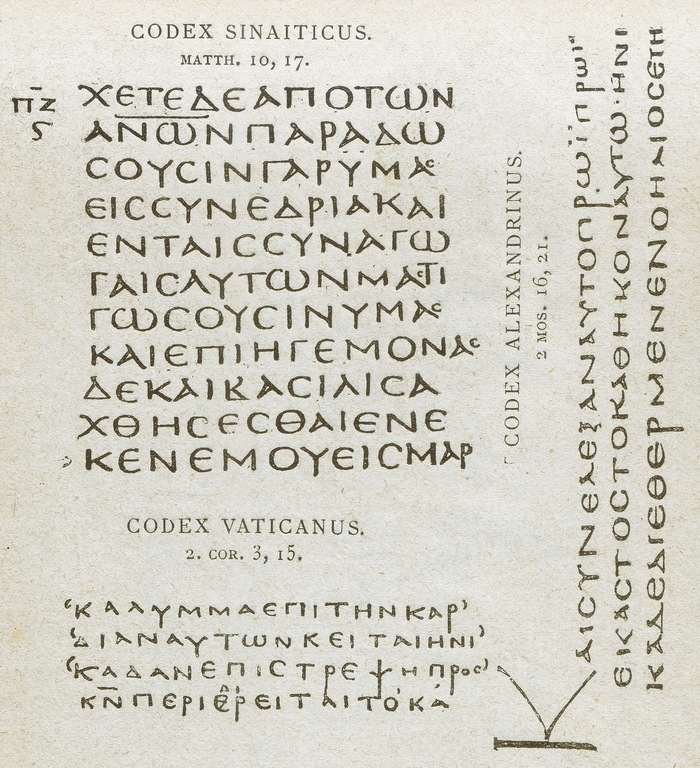 CODEX SINAITICUS.
MATTH. 10, 17.
Π̅Ζ̅ ΧΕΤΕΔΕΑΠΟΤΩΝ
Ϛ ΑΝ̅Ω̅ΝΠΑΡΑΔΩ
ϹΟΥϹΙΝΓΑΡΥΜΑϹ
ΕΙϹϹΥΝΕΔΡΙΑΚΑΙ
ΕΝΤΑΙϹϹΥΝΑΓΩ
ΓΑΙϹΑΥΤΩΝΜΑϹΤΙ
ΓΩϹΟΥϹΙΝΥΜΑϹ
ΚΑΙΕΠΙΗΓΕΜΟΝΑϹ
ΔΕΚΑΙΒΑϹΙΛΙϹΑ
ΧΘΗϹΕϹΘΑΙΕΝΕ
ΚΕΝΕΜΟΥΕΙϹΜΑΡ
CODEX VATICANUS.
2. COR. 3, 15.
ΚΑΛΥΜΜΑΕΠΙΤΗΝΚΑΡ
ΔΙΑΝΑΥΤΩΝΚΕΙΤΑΙΗΝΙ
ΚΑΔΑΝΕΠΙϹΤΡΕΨΗΠΡΟϹ
ΚΝ̅ΠΕΡΙΕΡΕΙΤΑΙΤΟΚΑ
CODEX ALEXANDRINUS.
2 MOS. 16, 21.
ΑΙϹΥΝΕΛΕΞΑΝΑΥΤΟΠΡΩΪΠΡΩΙ
ΕΚΑϹΤΟϹΤΟΚΑΘΗΚΟΝΑΥΤΩ·ΗΝΙ
ΚΑΔΕΔΙΕΘΕΡΜΕΝΕΝΟΗΛΙΟϹΕΤΗ